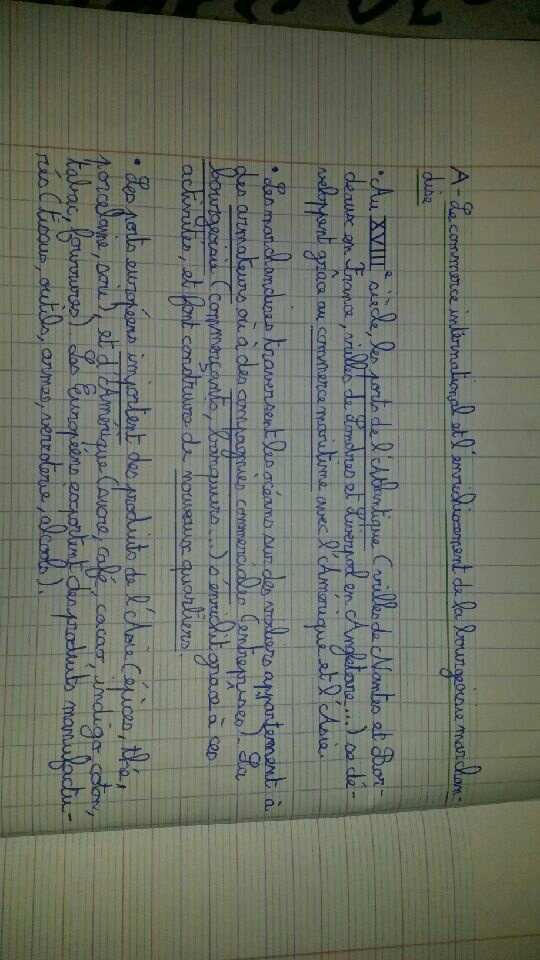 A- Le commerce international et l'enrichissement de la bourgeoisie marchan-
dise
• Au XVIIIe siècle, les ports de l'Atlantique (villes de Nantes et Bor-
deaux en France, villes de Londres et Liverpool en Angleterre...) se dé-
veloppent grâce au commerce maritime avec l'Amérique et l'Asie.
• Les marchandises traversent les océans sur des voiliers appartenant à
des armateurs ou à des compagnies commerciales (entreprises). La
bourgeoisie (commerçants, banquiers...) s'enrichit grace à ces
activités, et font construire de nouveaux quartiers.
• Les ports européens importent des produits de l'Asie (épices, thé,
porcelaine, soie), et d'Amérique (sucre, café, cacao, indigo, coton,
tabac, fourrures) Les Européens exportent des produits manufactu-
rés (tissus, outils, armes, verroterie, alcools).